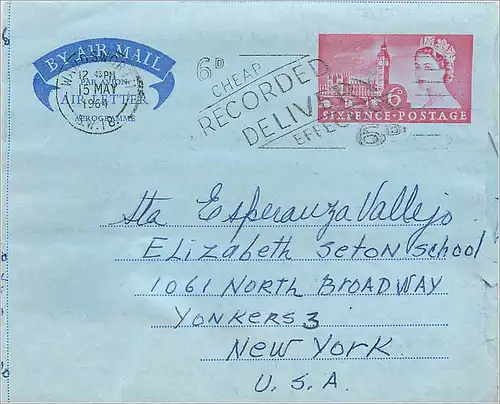 BY AIR MAIL
PAR AVION
AIR LETTER
AEROGRAMME
12 45 PM
15 MAY
1964
S.W.18
6D
CHEAP
RECORDED
DELIVERY
EFFECTIVE
6D
6D
SIXPENCE • POSTAGE
Sta Esperanza Vallejo
Elizabeth Seton School
1061 North Broadway
Yonkers 3
New York
U. S. A.